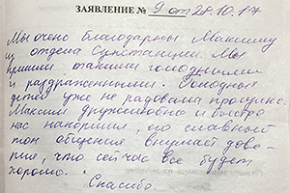 ЗАЯВЛЕНИЕ № 9 от 28.10.17
Мы очень благодарны Максиму
из отдела Сухстанции. Мы
пришли такими голодными
и раздраженными. Голодных
детей уже не радовала прогулка.
Максим дружелюбно и быстро
нас накормил, его славный
тон общения внушает дове-
рие, что сейчас все будет
хорошо.
Спасибо.